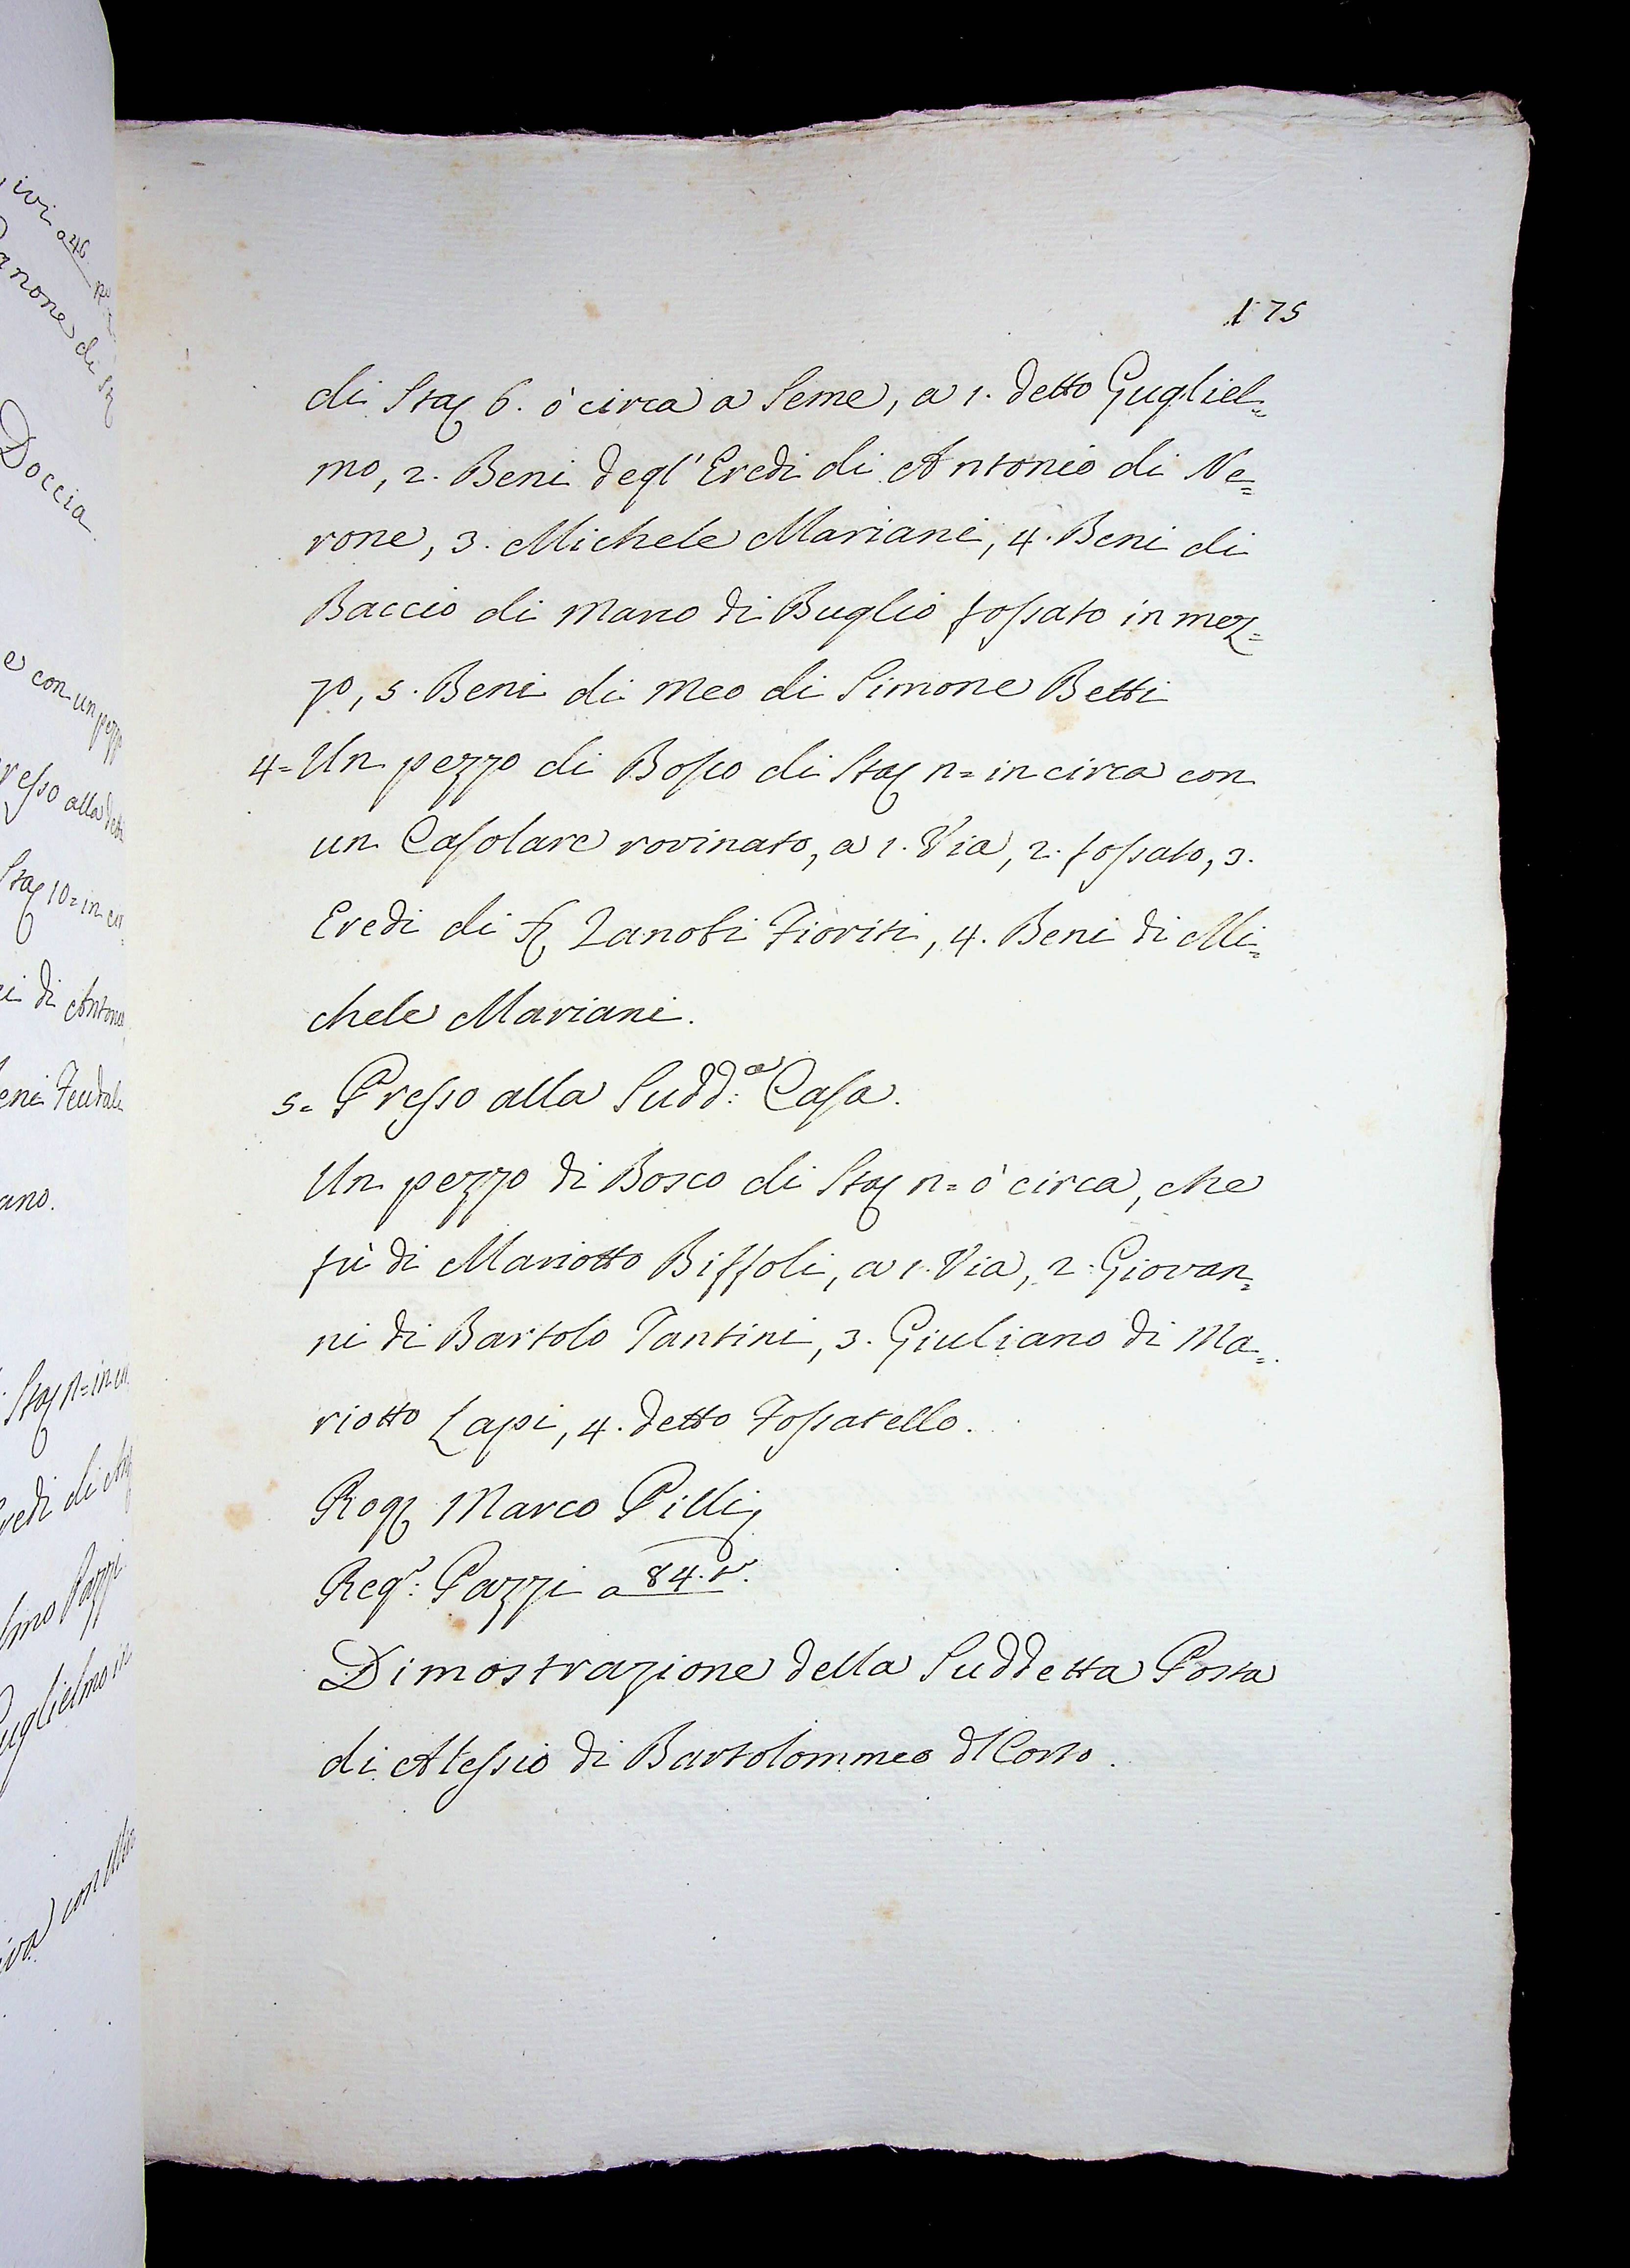 175
di Sta 6. ò circa a Seme, a 1. detto Gugliel=
mo, 2. Beni degl' Eredi di Antonio di Ne=
rone, 3. Michele Mariani, 4. Beni di
Baccio di Marco di Buglio fossato in mez=
zo, 5. Beni di Meo di Simone Betti
4= Un pezzo di Bosco di Staj n= in circa con
un Casolare rovinato, a 1. Via, 2. fossato, 3.
Eredi di Zanobi Fioriti, 4. Beni di Mi=
chele Mariani.
5= Presso alla Sudd:a Casa.
Un pezzo di Bosco di Staj n= ò circa, che
fù di Mariotto Biffoli, a 1. Via, 2. Giovan=
ni di Bartolo Tantini, 3. Giuliano di Ma=
riotto Lapi, 4. detto Fossatello.
Rog Marco Pilli
Reg:o Pazzi a 84. t.
Dimostrazione della Suddetta Posta
di Alessio di Bartolommeo d Corso.
ivi a 46
Canone di
Doccia
e con un pezzo
resso alla
Staj 10= in cir=
di Antonio
eni Feudali
ano.
Staj n= in
redi di
lmo Pazzi
uglielmo in
con